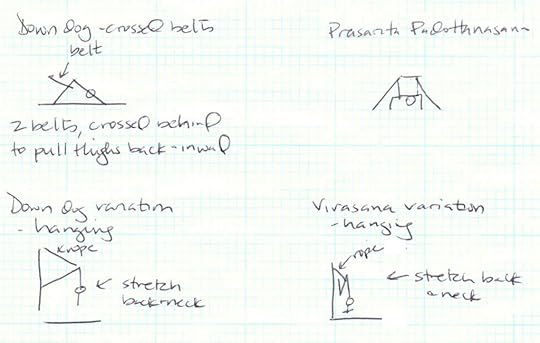 Down Dog - crossed belts
belt
2 belts, crossed behind
to pull thighs back - inward
Prasarita Padottanasana
Down Dog variation
- hanging
rope
stretch
back + neck
Virasana variation
- hanging
rope
stretch back
+ neck